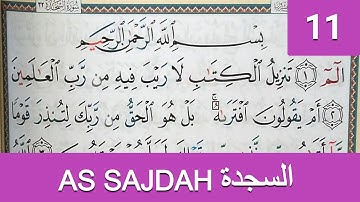 11
بِسْمِ اللَّهِ الرَّحْمَٰنِ الرَّحِيمِ
الٓمٓ ١ تَنزِيلُ الْكِتَابِ لَا رَيْبَ فِيهِ مِن رَّبِّ الْعَالَمِينَ
٢ أَمْ يَقُولُونَ افْتَرَاهُ ۚ بَلْ هُوَ الْحَقُّ مِن رَّبِّكَ لِتُنذِرَ قَوْمًا
AS SAJDAH السجدة